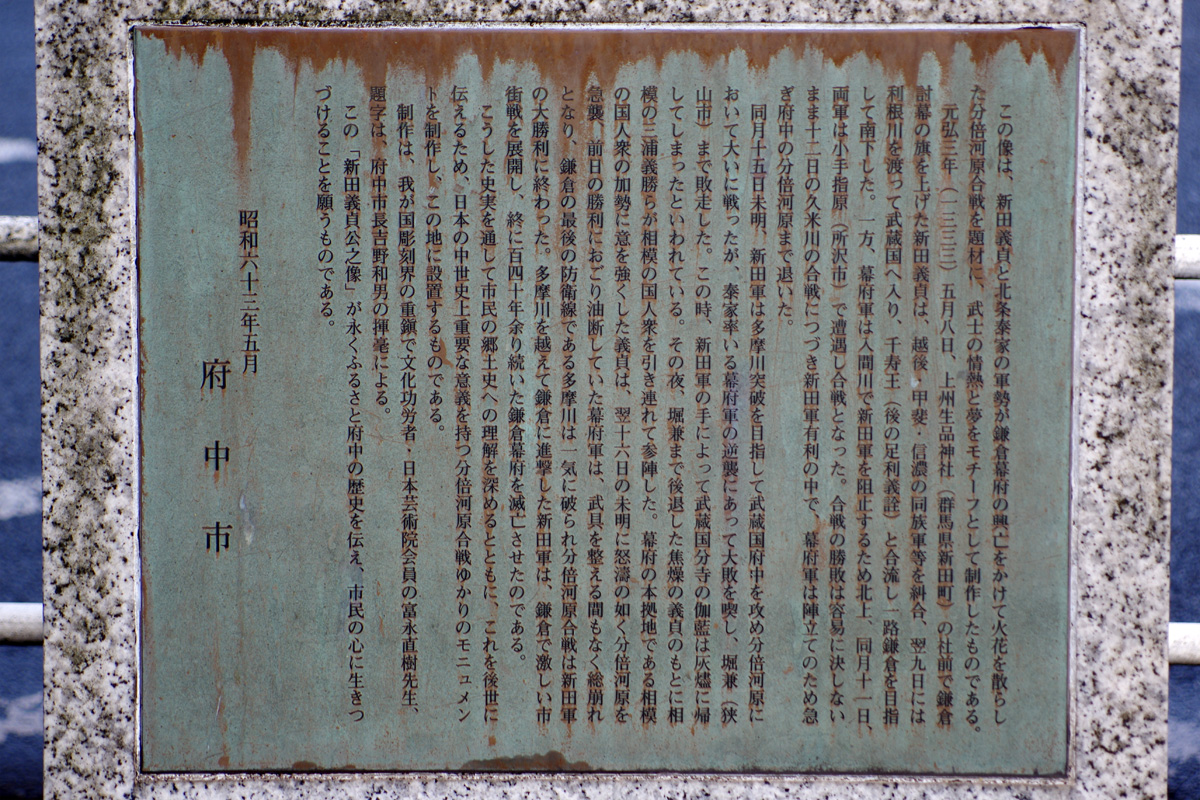 この像は、新田義貞と北条泰家の軍勢が鎌倉幕府の興亡をかけて火花を散らし
た分倍河原合戦を題材に、武士の情熱と夢をモチーフとして制作したものである。
元弘三年(一三三三)五月八日、上州生品神社(群馬県新田町)の社前で鎌倉
討幕の旗を上げた新田義貞は、越後・甲斐・信濃の同族軍等を糾合、翌九日には
利根川を渡って武蔵国へ入り、千寿王(後の足利義詮)と合流し一路鎌倉を目指
して南下した。一方、幕府軍は入間川で新田軍を阻止するため北上、同月十一日、
両軍は小手指原(所沢市)で遭遇し合戦となった。合戦の勝敗は容易に決しない
まま十二日の久米川の合戦につづき新田軍有利の中で、幕府軍は陣立てのため急
ぎ府中の分倍河原まで退いた。
同月十五日未明、新田軍は多摩川突破を目指して武蔵国府中を攻め分倍河原に
おいて大いに戦ったが、泰家率いる幕府軍の逆襲にあって大敗を喫し、堀兼(狭
山市)まで敗走した。この時、新田軍の手によって武蔵国分寺の伽藍は灰燼に帰
してしまったといわれている。その夜、堀兼まで後退した焦燥の義貞のもとに相
模の三浦義勝らが相模の国人衆を引き連れて参陣した。幕府の本拠地である相模
の国人衆の加勢に意を強くした義貞は、翌十六日の未明に怒濤の如く分倍河原を
急襲、前日の勝利におごり油断していた幕府軍は、武具を整える間もなく総崩れ
となり、鎌倉の最後の防衛線である多摩川は一気に破られ分倍河原合戦は新田軍
の大勝利に終わった。多摩川を越えて鎌倉に進撃した新田軍は、鎌倉で激しい市
街戦を展開し、終に百四十年余り続いた鎌倉幕府を滅亡させたのである。
こうした史実を通して市民の郷土史への理解を深めるとともに、これを後世に
伝えるため、日本の中世史上重要な意義を持つ分倍河原合戦ゆかりのモニュメン
トを制作し、この地に設置するものである。
制作は、我が国彫刻界の重鎮で文化功労者・日本芸術院会員の富永直樹先生、
題字は、府中市長吉野和男の揮毫による。
この「新田義貞公之像」が永くふるさと府中の歴史を伝え、市民の心に生きつ
づけることを願うものである。
昭和六十三年五月
府中市